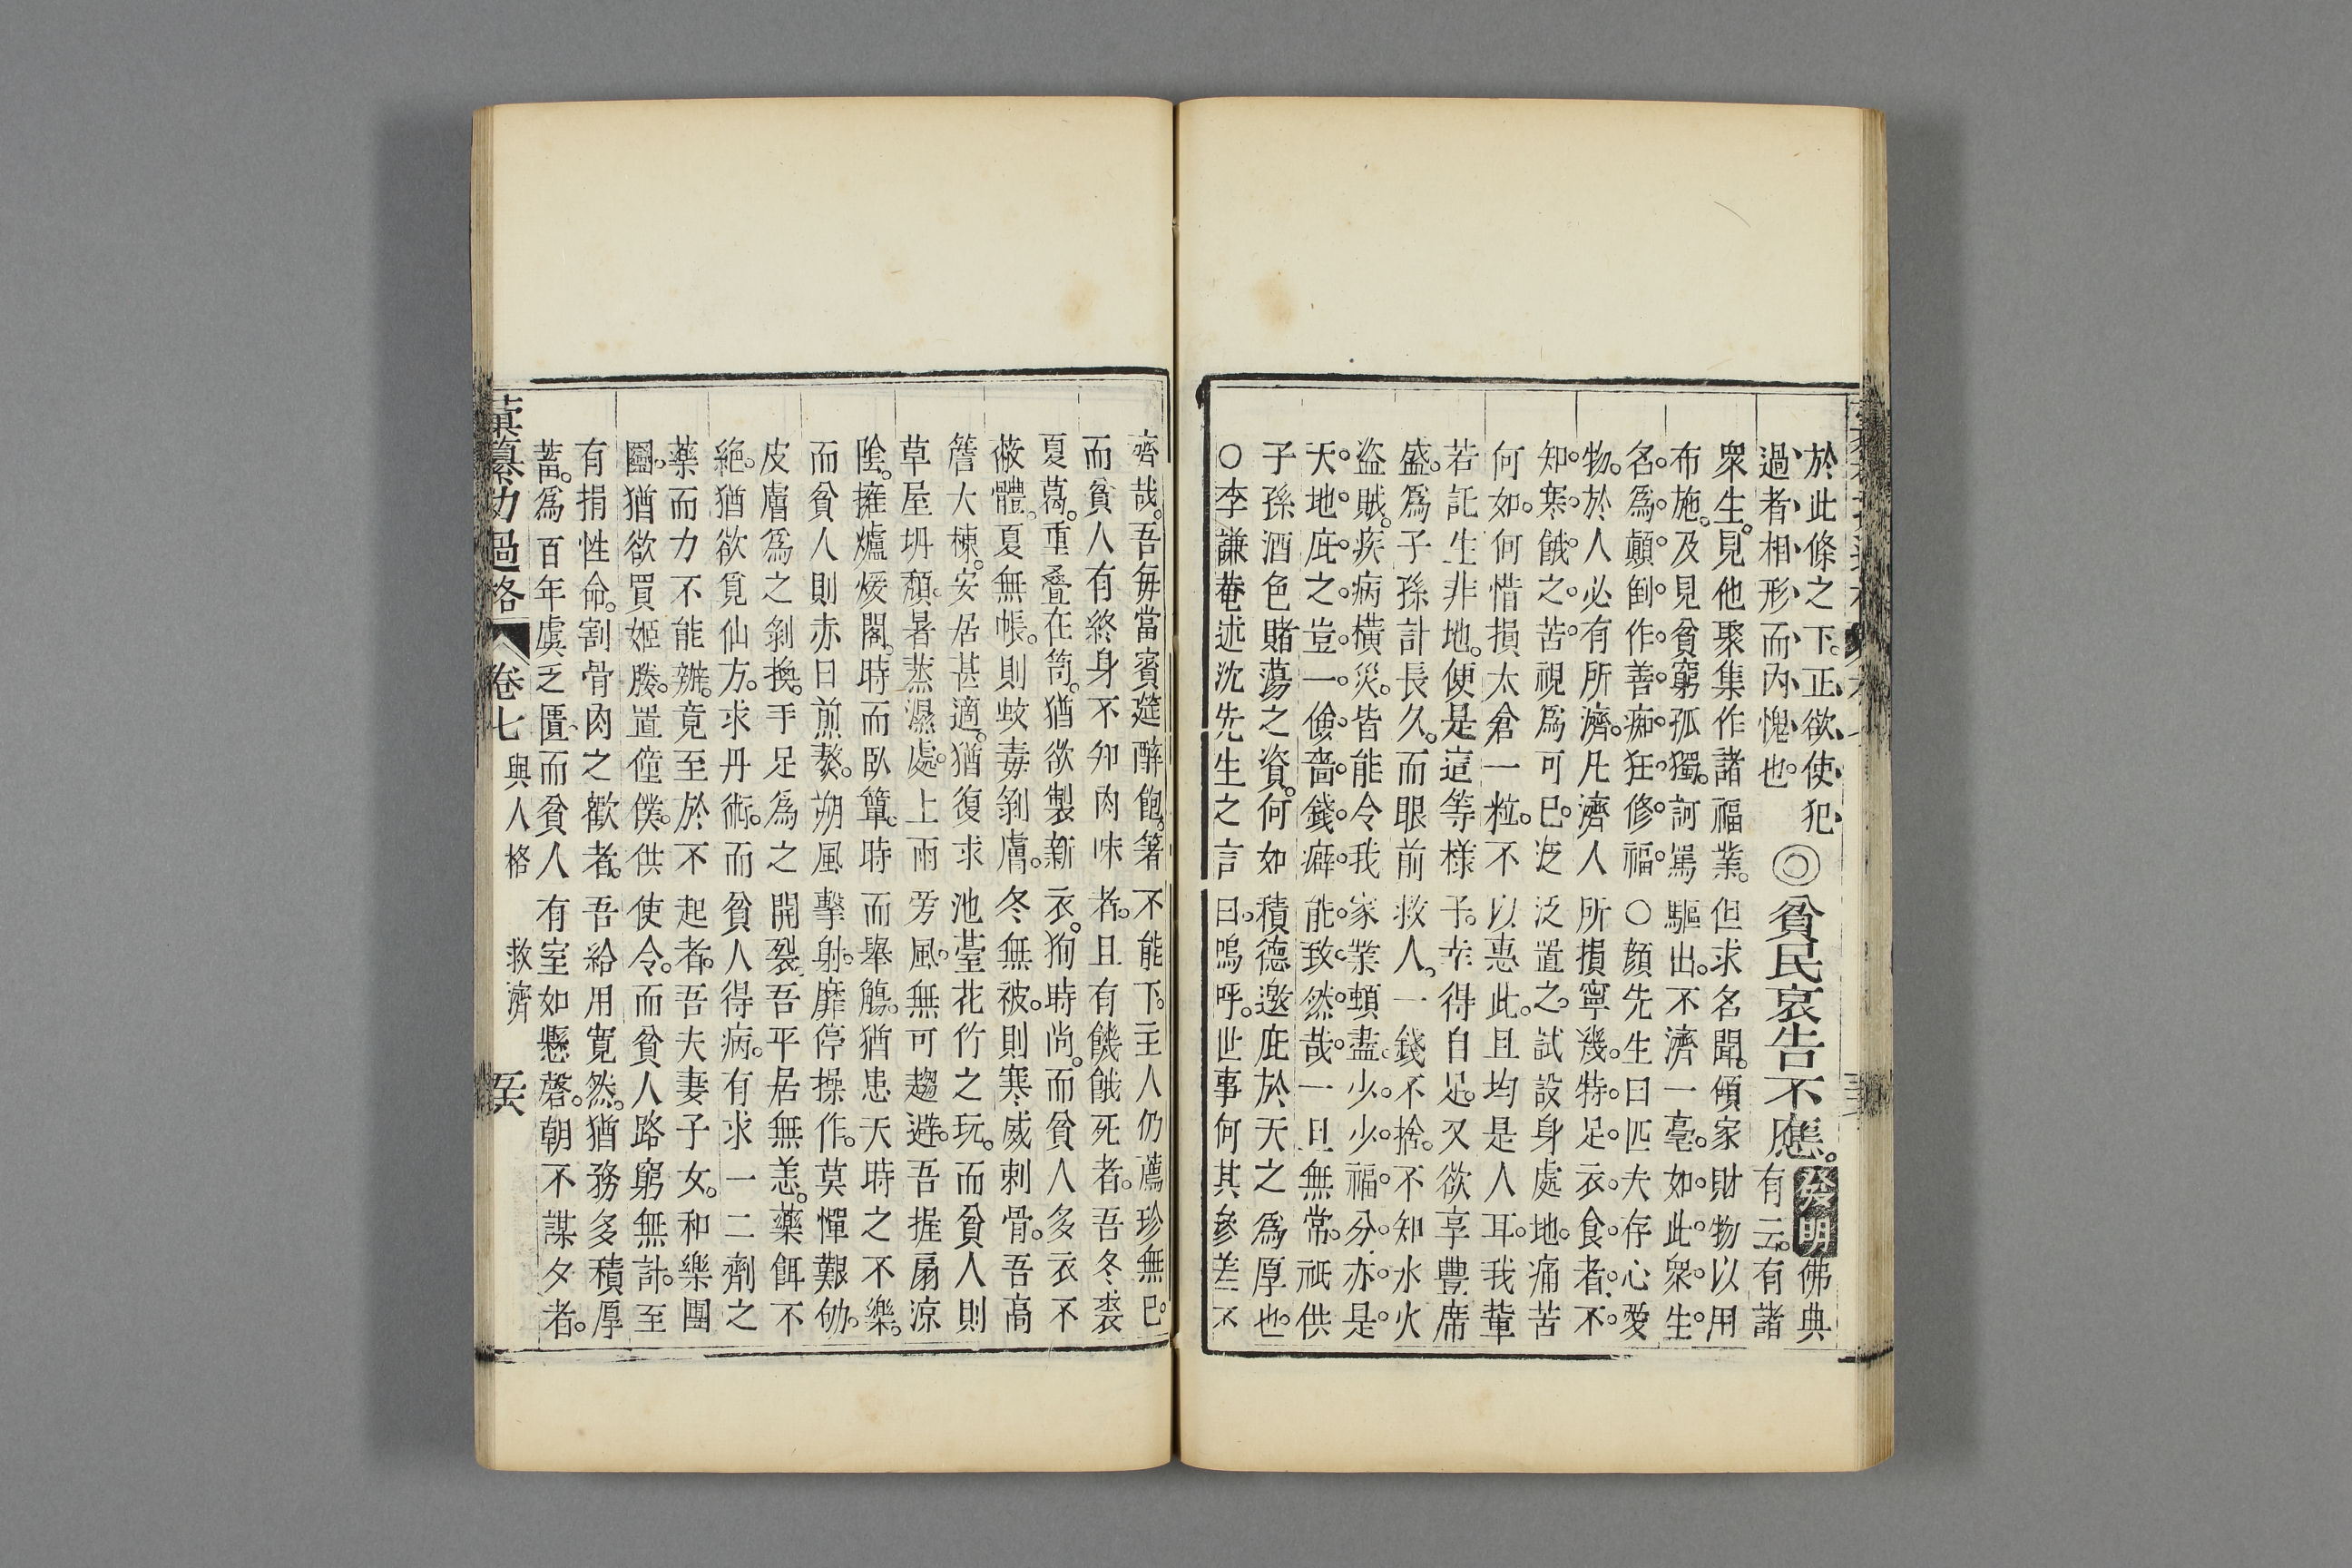 於此條之下。正欲使犯
過者相形而內愧也。
◎貧民哀告不應。
發明佛典
有云。有諸
眾生。見他聚集作諸福業。但求名聞。傾家財物以用
布施。及見貧窮孤獨。訶罵驅出。不濟一毫。如此眾生。
名為顛倒作善痴狂修福。○顏先生曰匹夫存心愛
物。於人必有所濟。凡濟人所損寧幾。特足衣食者。不
知寒餓之苦。視爲可已。泛泛置之。試設身處地。痛苦
何如。何惜損太倉一粒。不以惠此。且均是人耳。我輩
若託生非地。便是這等樣子。幸得自足。又欲享豐席
盛。爲子孫計長久。而眼前救人。一錢不捨。不知水火
盜賊。疾病橫災。皆能令我家業頓盡。少少福分。亦是。
天地庇之。豈一儉嗇錢癖。能致然哉。一旦無常。祇供
子孫酒色賭蕩之資。何如積德邀庇於天之爲厚也。
○李謙菴述沈先生之言曰。嗚呼。世事何其參差不
齊哉。吾每當賓筵醉飽。箸不能下。主人仍薦珍無已。
而貧人有終身不知肉味者。且有饑餓死者。吾冬裘
夏葛。重疊在笥。猶欲製新衣。狥時尚。而貧人多衣不
蔽體。夏無帳。則蚊毒剝膚。冬無被。則寒威刺骨。吾高
簷大棟。安居甚適。猶復求池臺花竹之玩。而貧人則
草屋坍頹。暑蒸濕處。上雨旁風。無可趨避。吾握扇涼
陰。擁爐煖閣。時而臥簟。時而舉觴。猶患天時之不樂。
而貧人則赤日煎熬。朔風擊射。靡停操作。莫憚艱劬。
皮膚爲之剝換。手足爲之開裂。吾平居無恙。藥餌不
絶。猶欲覓仙方。求丹術。而貧人得病。有求一二劑之
藥而力不能辦。竟至於不起者。吾夫妻子女。和樂團
圞。猶欲買姬媵。置僮僕。供使令。而貧人路窮無計。至
有捐性命。割骨肉之歡者。吾給用寬然。猶務多積厚
蓄。爲百年虞乏匱。而貧人有室如懸磬。朝不謀夕者。
彙纂功過格 卷七 與人格 救濟 五六